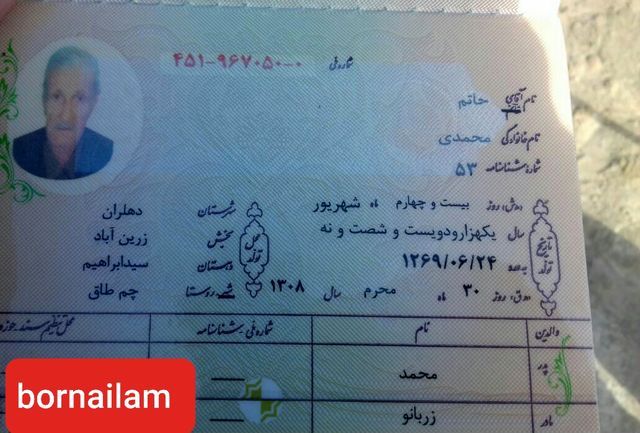 شماره ملی ۴۵۱-۹۶۷۰۵۰-۰
نام آقای حاتم
نام خانوادگی محمدی
شماره شناسنامه ۵۳
تاریخ تولد
(ه‍.ش) روز بیست و چهارم ماه شهریور
سال یکهزارودویست و شصت و نه
به عدد ۱۲۶۹/۰۶/۲۴
(ه‍.ق) روز ۳۰ ماه محرم سال ۱۳۰۸
محل تولد
شهرستان دهلران
بخش زرین آباد
دهستان سیدابراهیم
شهر روستا چم طاق
والدین نام شماره ملی - شناسنامه محل تنظیم سند حوزه
پدر محمد
مادر زربانو
bornailam